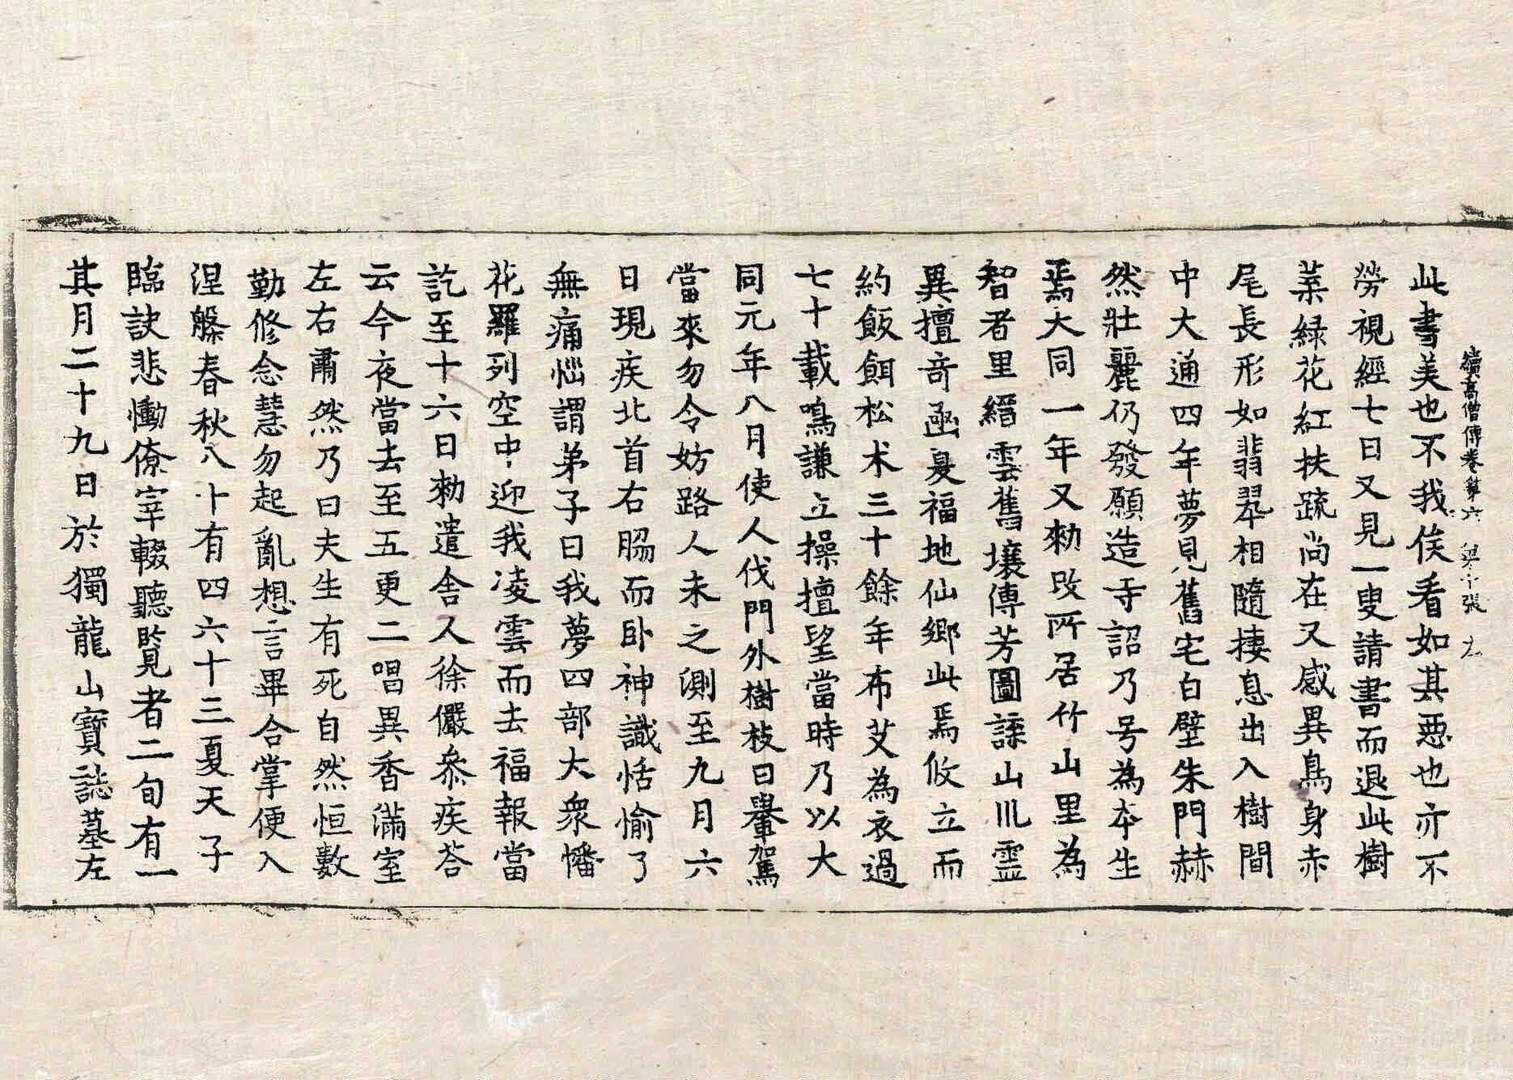 續高僧傳卷第六 梁 十張 左
此書美也不我俟看如其惡也亦不
勞視經七日又見一叟請書而退此樹
葉緑花紅扶疏尚在又感異鳥身赤
尾長形如翡翠相隨捿息出入樹間
中大通四年夢見舊宅白壁朱門赫
然壯麗仍發願造寺詔乃号為本生
焉大同一年又勑改所居竹山里為
智者里縉雲舊壤傳芳圖諜山川靈
異擅奇凾夏福地仙鄉此焉攸立而
約飯餌松术三十餘年布艾為衣過
七十載鳴謙立操擅望當時乃以大
同元年八月使人伐門外樹枝曰轝駕
當來勿令妨路人未之測至九月六
日現疾北首右脇而卧神識恬愉了
無痛惱謂弟子曰我夢四部大衆幡
花羅列空中迎我凌雲而去福報當
訖至十六日勑遣舍人徐儼叅疾荅
云今夜當去至五更二唱異香滿室
左右肅然乃曰夫生有死自然恒數
勤修念慧勿起亂想言畢合掌便入
涅槃春秋八十有四六十三夏天子
臨訣悲慟僚宰輟聽覽者二旬有一
其月二十九日於獨龍山寶誌墓左